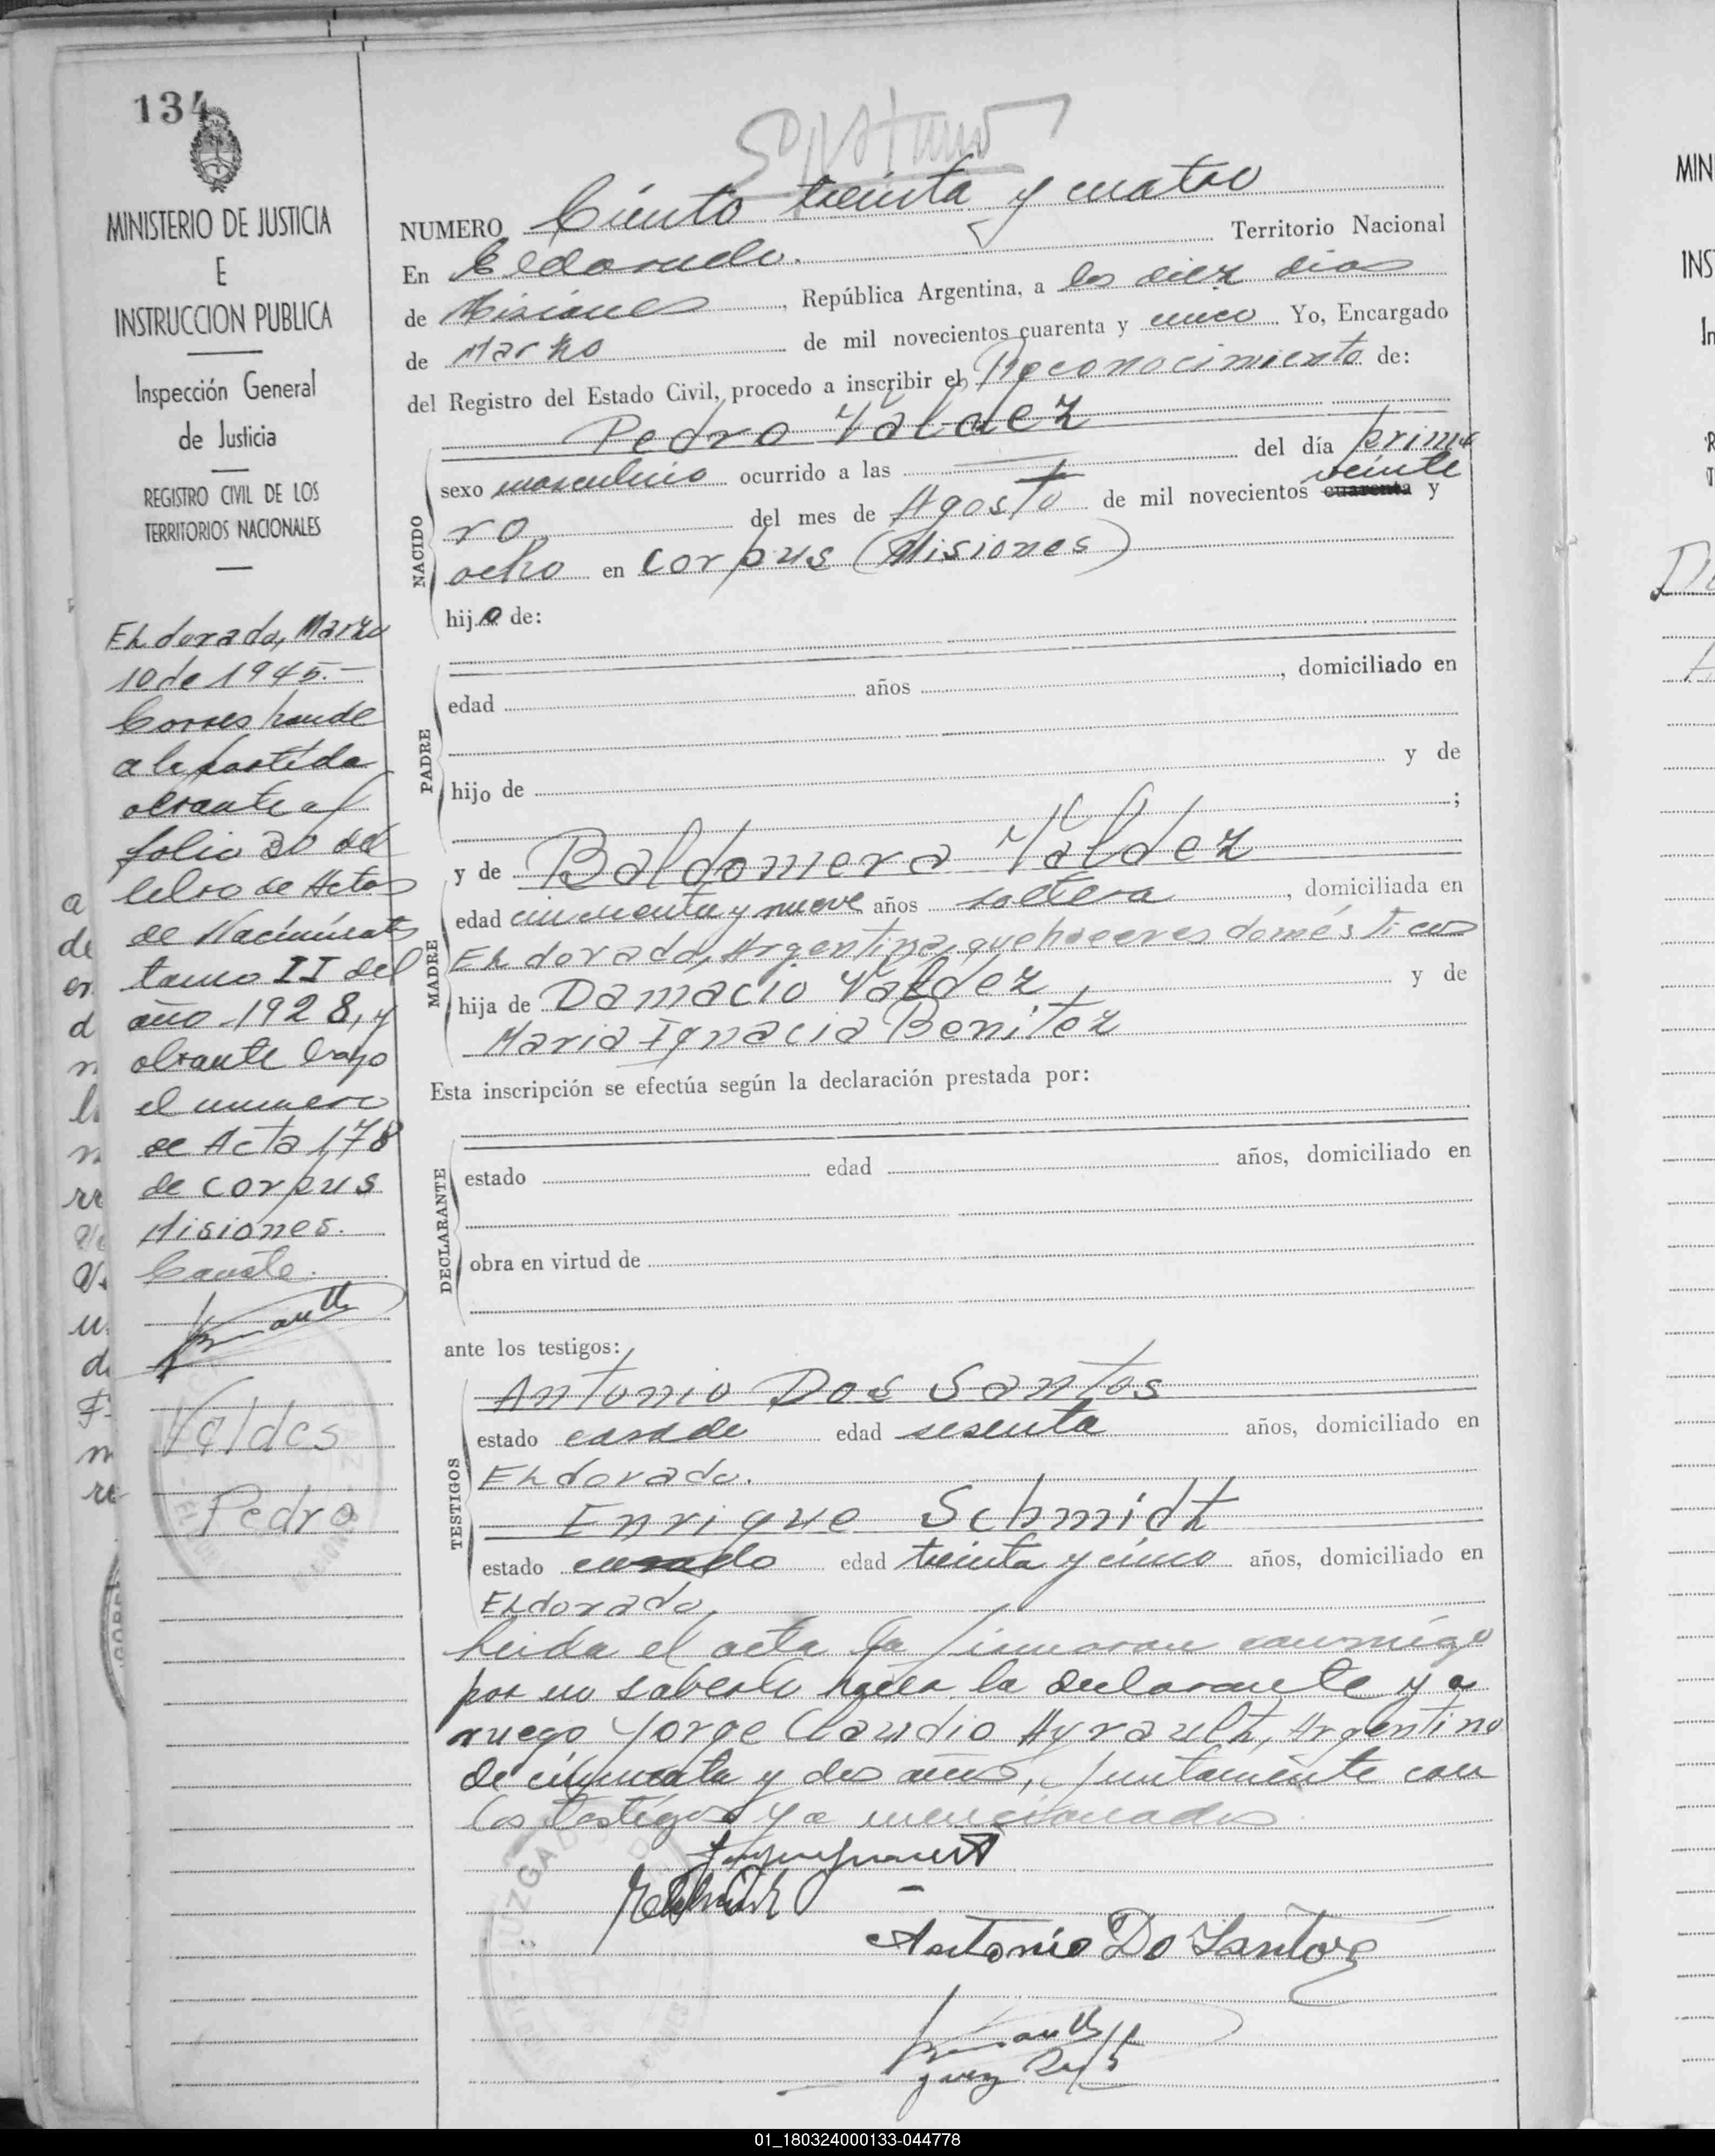 134
MINISTERIO DE JUSTICIA
E
INSTRUCCION PUBLICA
Inspección General
de Justicia
REGISTRO CIVIL DE LOS
TERRITORIOS NACIONALES
Eldorado, Marzo
10 de 1945.-
Corresponde
a la partida
obrante al
folio 30 del
libro de Actas
de Nacimientos
tomo II del
año 1928, y
obrante bajo
el numero
de Acta 178
de Corpus
Misiones.
Conste.
Valdes
Pedro
NUMERO Ciento treinta y cuatro
En Eldorado. Territorio Nacional
de Misiones, República Argentina, a los diez dias
de Marzo de mil novecientos cuarenta y cinco Yo, Encargado
del Registro del Estado Civil, procedo a inscribir el Reconocimiento de:
Pedro Valdez
NACIDO
sexo masculino ocurrido a las del día prime
ro del mes de Agosto de mil novecientos cuarenta veinte y
ocho en Corpus (Misiones)
hijo de:
PADRE
edad años , domiciliado en
hijo de y de
;
MADRE
y de Baldomera Valdez
edad cincuenta y nueve años soltera, domiciliada en
Eldorado, Argentina, quehaceres domésticos
hija de Damacio Valdez y de
Maria Ignacia Benitez
Esta inscripción se efectúa según la declaración prestada por:
DECLARANTE
estado edad años, domiciliado en
obra en virtud de
ante los testigos:
TESTIGOS
Antonio Dos Santos
estado casado edad sesenta años, domiciliado en
Eldorado.
Enrique Schmidt
estado casado edad treinta y cinco años, domiciliado en
Eldorado.
Leida el acta la firmaron conmigo
por no saberlo hacer la declarante y a
ruego Jorge Claudio Ayrault, Argentino
de cincuenta y dos años, juntamente con
los testigos ya mencionados
Antonio Do Santos
01_180324000133-044778